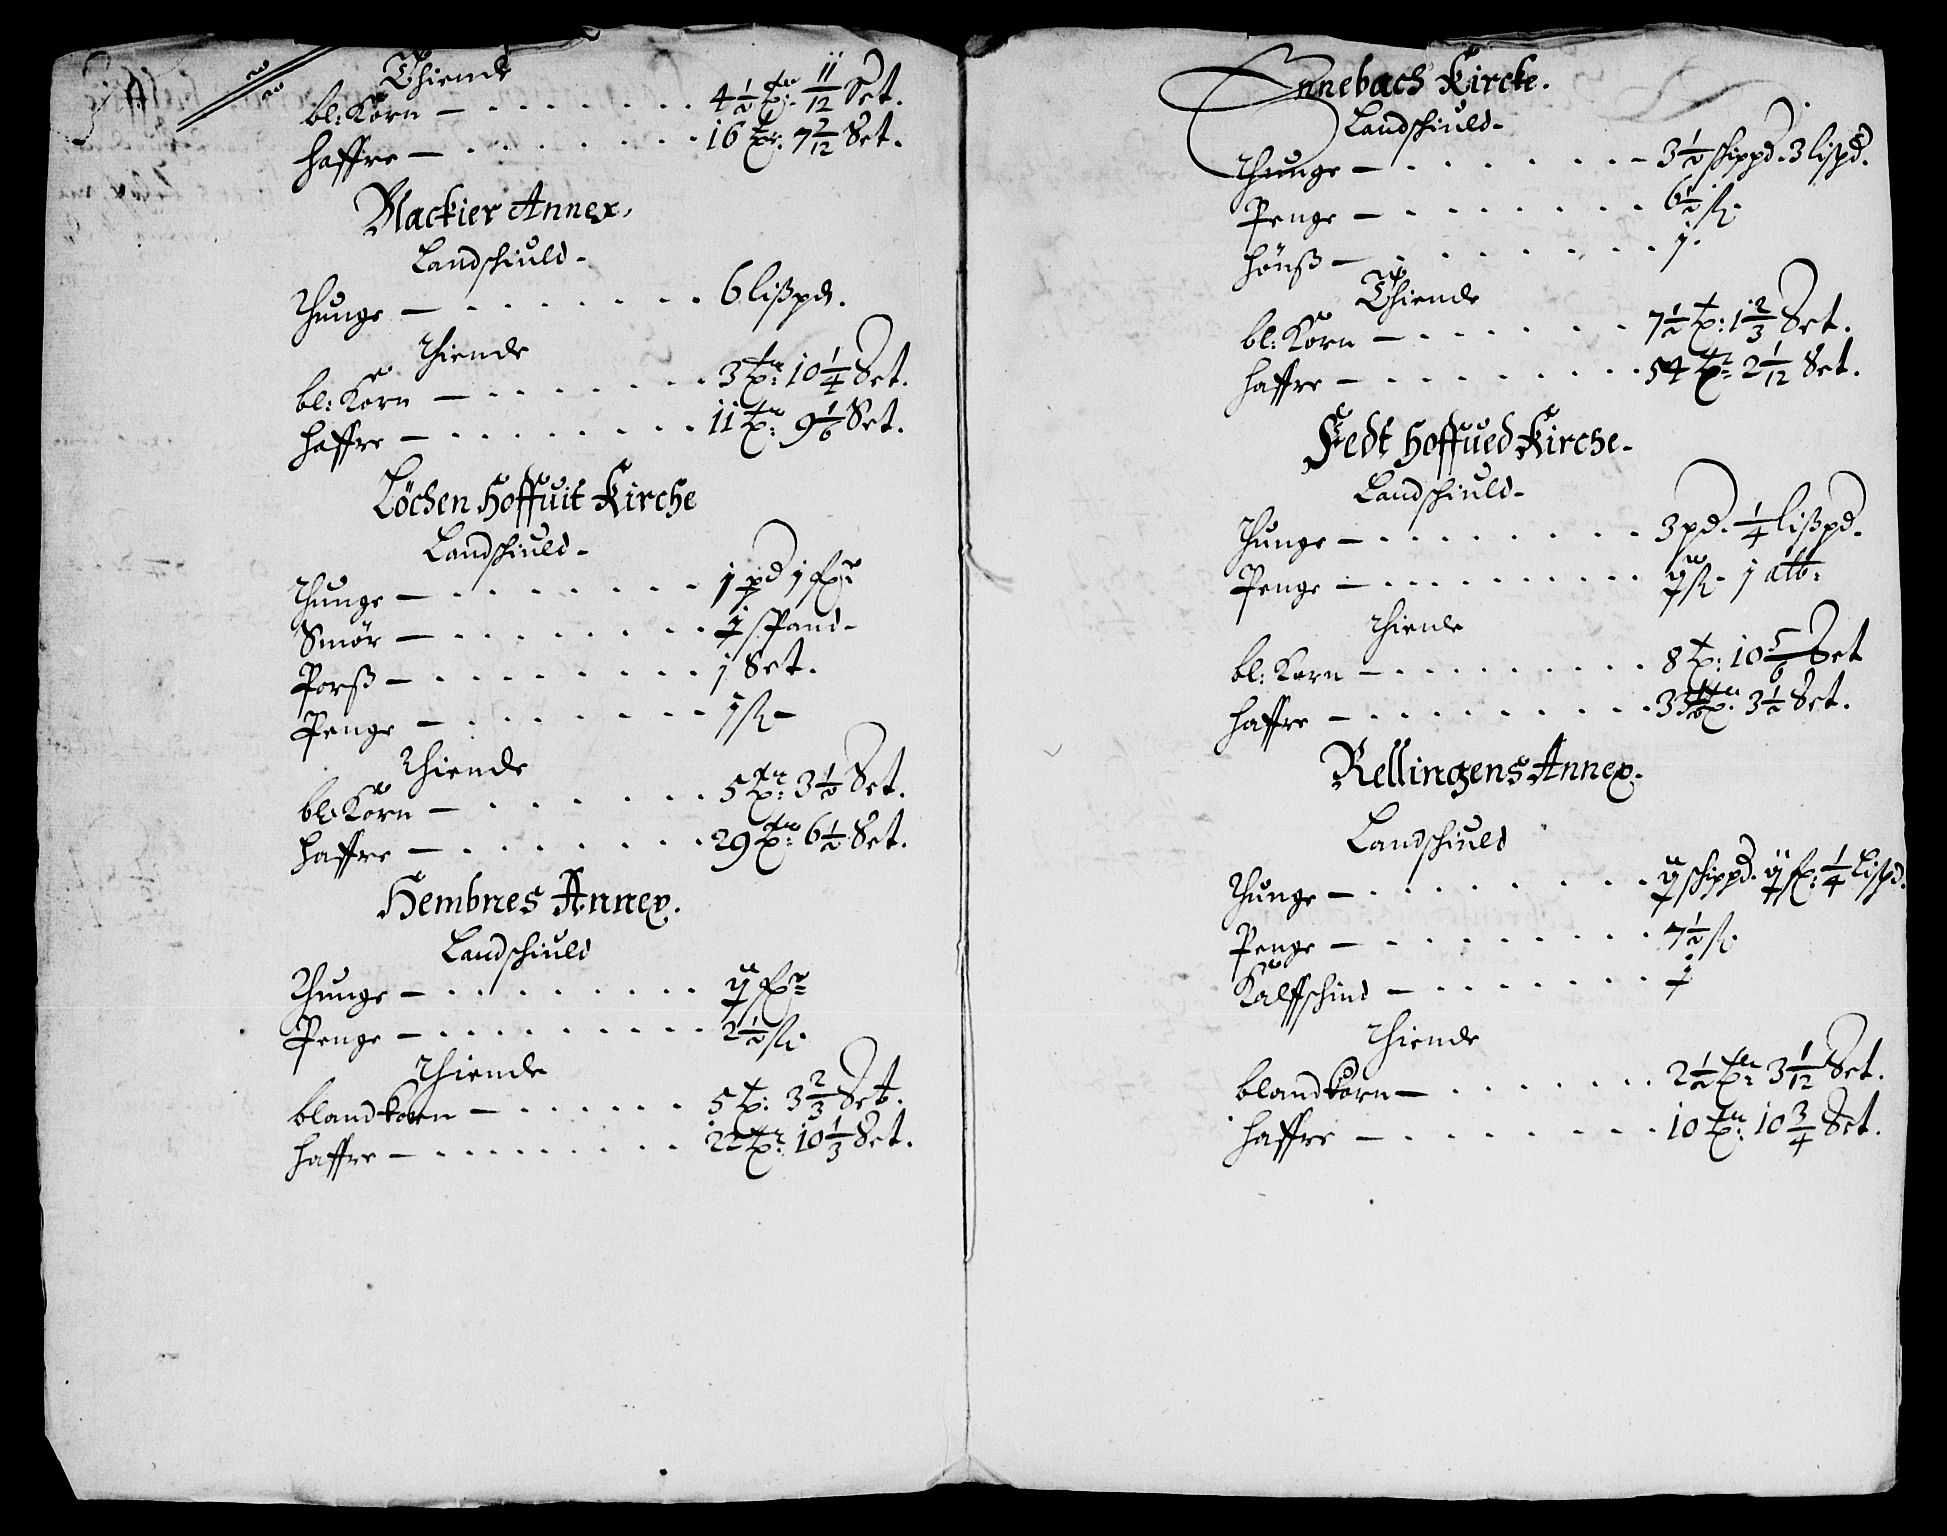 Thiende
bl: Korn — 4½ tr: 11/12 Set.
haffre — 16 tr. 7 2/12 Set.
Blackier Annex.
Landschiuld -
Thunge — 6 lißpd.
Thiende
bl: Korn — 3 tr: 10¼ Set.
haffre — 11 tr: 9 1/6 Set.
Löchen Hoffuit Kirche
Landschiuld -
Thunge — j pd j fr:
Smör — j span -
Porß — j Set.
Penge — j ß -
Thiende
bl: Korn — 5 tr: 3½ Set.
haffre — 29 tr: 6½ Set.
Hembnes Annex.
Landschiuld
Thunge — ij fr:
Penge — 2½ ß.
Thiende
blandkorn — 5 tr: 3⅔ Set.
haffre — 22 tr: 10⅓ Set.
Ennebach Kircke.
Landschiuld -
Thunge — 3½ schippd. 3 lispd.
Penge — 6½ ß.
hönß — j.
Thiende
bl: Korn — 7½ tr: 1⅔ Set.
haffre — 54 tr: 2 1/12 Set.
Fedt Hoffued Kirche -
Landschiuld -
Thunge — 3 pd. ¼ lißpd.
Penge — ij ß - j alb:
Thiende
bl: Korn — 8 tr: 10 5/6 Set
haffre — 33 tr: 3½ Set.
Rellingens Annex.
Landschiuld
Thunge — ij schippd. ij fr: ¼ Lißpd.
Penge — 7½ ß.
Kalffschind — j
Thiende
blandkorn — 2½ tr: 3 1/12 Set.
haffre — 10 tr: 10¾ Set.